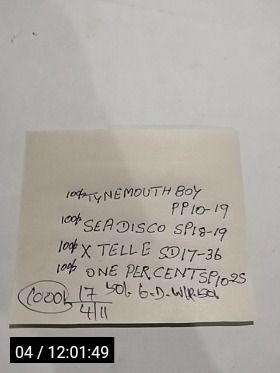 100/- TYNEMOUTH BOY
PP10-19
100/- SEADISCO SP18-19
100/- X TELLE SD17-36
100/- ONE PERCENT SP10-25
17
4/11
04 / 12:01:49